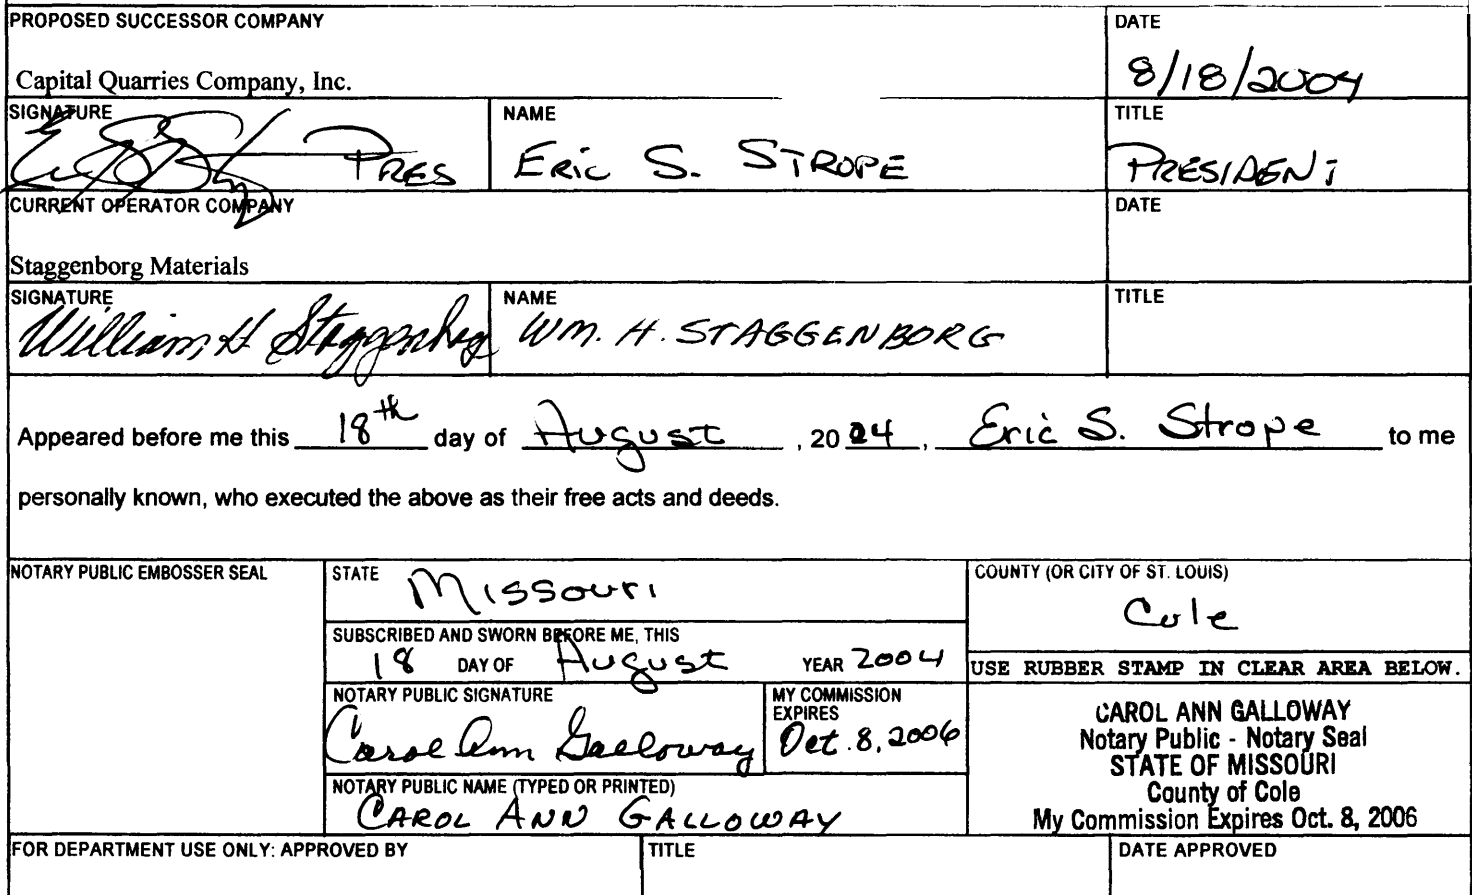 PROPOSED SUCCESSOR COMPANY DATE
Capital Quarries Company, Inc. 8/18/2004
SIGNATURE NAME TITLE
PRES Eric S. STROPE PRESIDENT
CURRENT OPERATOR COMPANY DATE
Staggenborg Materials
SIGNATURE NAME TITLE
William H Staggenborg WM. H. STAGGENBORG
Appeared before me this 18th day of August, 2004, Eric S. Strope to me
personally known, who executed the above as their free acts and deeds.
NOTARY PUBLIC EMBOSSER SEAL STATE Missouri COUNTY (OR CITY OF ST. LOUIS)
Cole
SUBSCRIBED AND SWORN BEFORE ME, THIS
18 DAY OF August YEAR 2004
USE RUBBER STAMP IN CLEAR AREA BELOW.
NOTARY PUBLIC SIGNATURE MY COMMISSION
EXPIRES
Carol Ann Galloway Oct. 8, 2006
NOTARY PUBLIC NAME (TYPED OR PRINTED)
CAROL ANN GALLOWAY
CAROL ANN GALLOWAY
Notary Public - Notary Seal
STATE OF MISSOURI
County of Cole
My Commission Expires Oct. 8, 2006
FOR DEPARTMENT USE ONLY: APPROVED BY TITLE DATE APPROVED